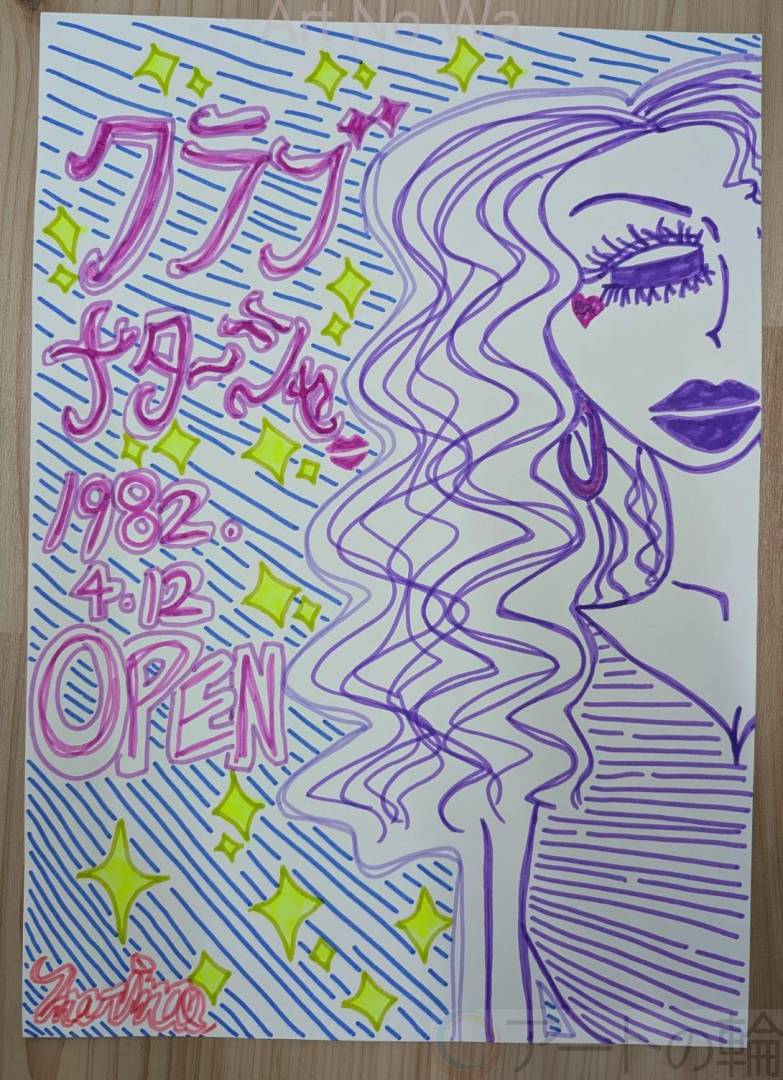 Art No Wa
クラブ
ナターシャ
1982.
4.12
OPEN
Marina
アートの輪